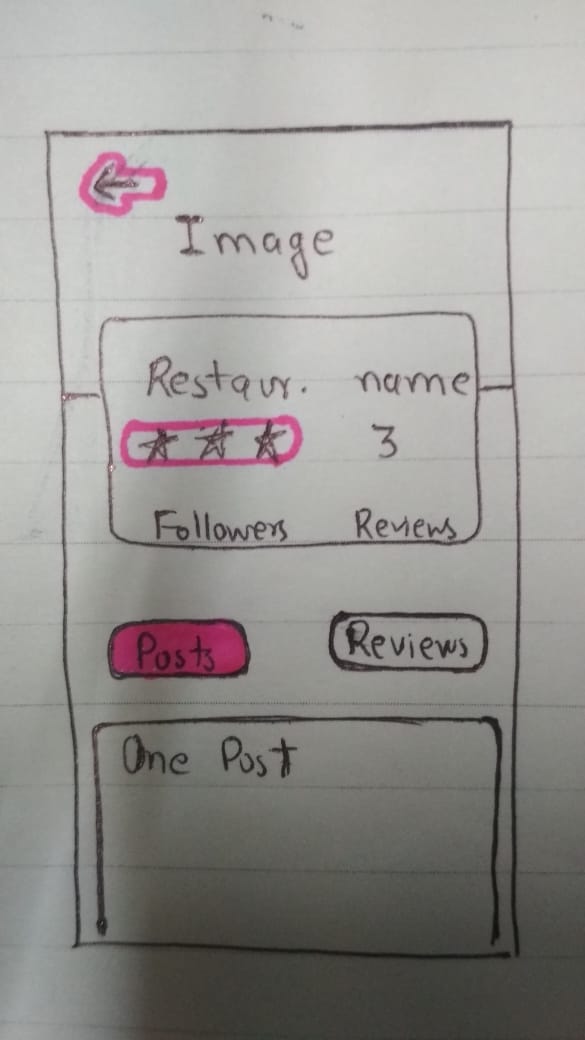 Image
Restaur. name
3
Followers Reviews
Posts Reviews
One Post